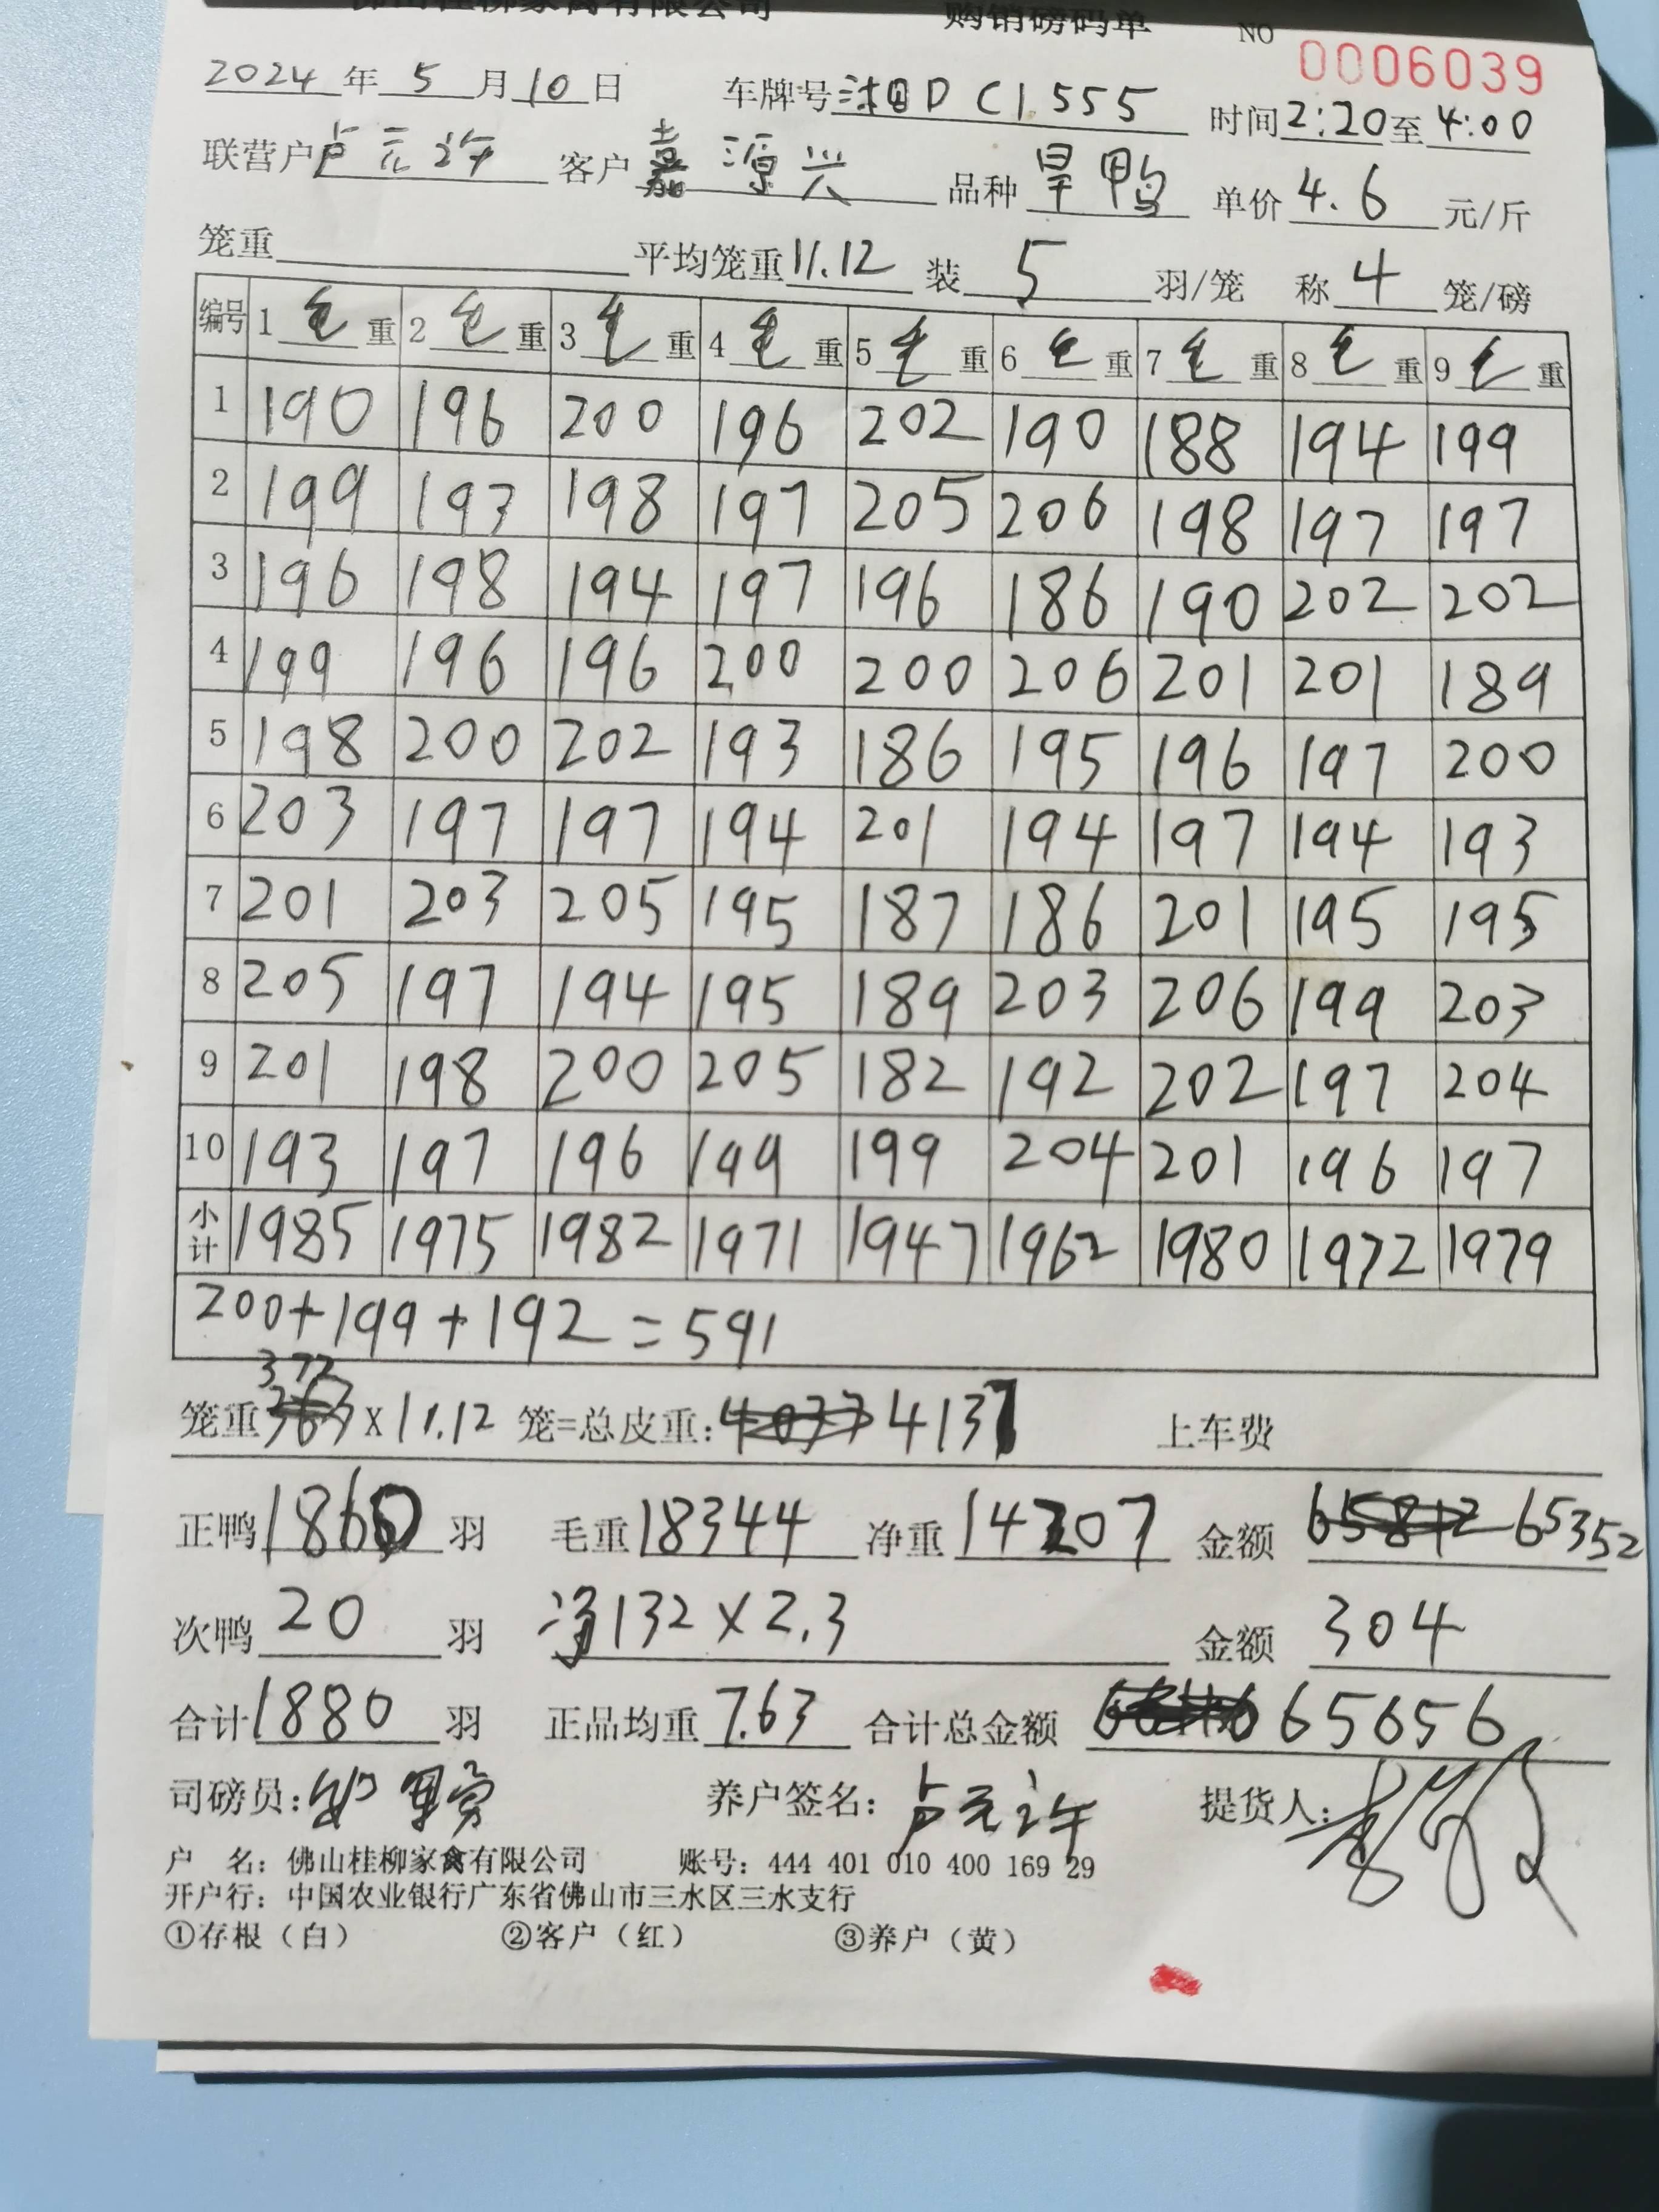 佛山桂柳家禽有限公司 购销磅码单 NO 0006039
2024年5月10日 车牌号 湘D C1555 时间2:20至4:00
联营户 卢元许 客户 嘉源兴 品种 旱鸭 单价4.6元/斤
笼重 平均笼重11.12 装5羽/笼 称4笼/磅
编号 1毛重 2毛重 3毛重 4毛重 5毛重 6毛重 7毛重 8毛重 9毛重
1 190 196 200 196 202 190 188 194 199
2 199 193 198 197 205 206 198 197 197
3 196 198 194 197 196 186 190 202 202
4 199 196 196 200 200 206 201 201 189
5 198 200 202 193 186 195 196 197 200
6 203 197 197 194 201 194 197 194 193
7 201 203 205 195 187 186 201 195 195
8 205 197 194 195 189 203 206 199 203
9 201 198 200 205 182 192 202 197 204
10 193 197 196 199 199 204 201 196 197
小计 1985 1975 1982 1971 1947 1962 1980 1972 1979
200+199+192=591
372
笼重 363 X 11.12 笼=总皮重: 4037 4137 上车费
正鸭1860羽 毛重18344 净重14207 金额 65812 65352
次鸭20羽 净132×2.3 金额304
合计1880羽 正品均重7.63 合计总金额 65656
司磅员: 养户签名:卢元许 提货人:
户 名:佛山桂柳家禽有限公司 账号:444 401 010 400 169 29
开户行:中国农业银行广东省佛山市三水区三水支行
①存根(白) ②客户(红) ③养户(黄)